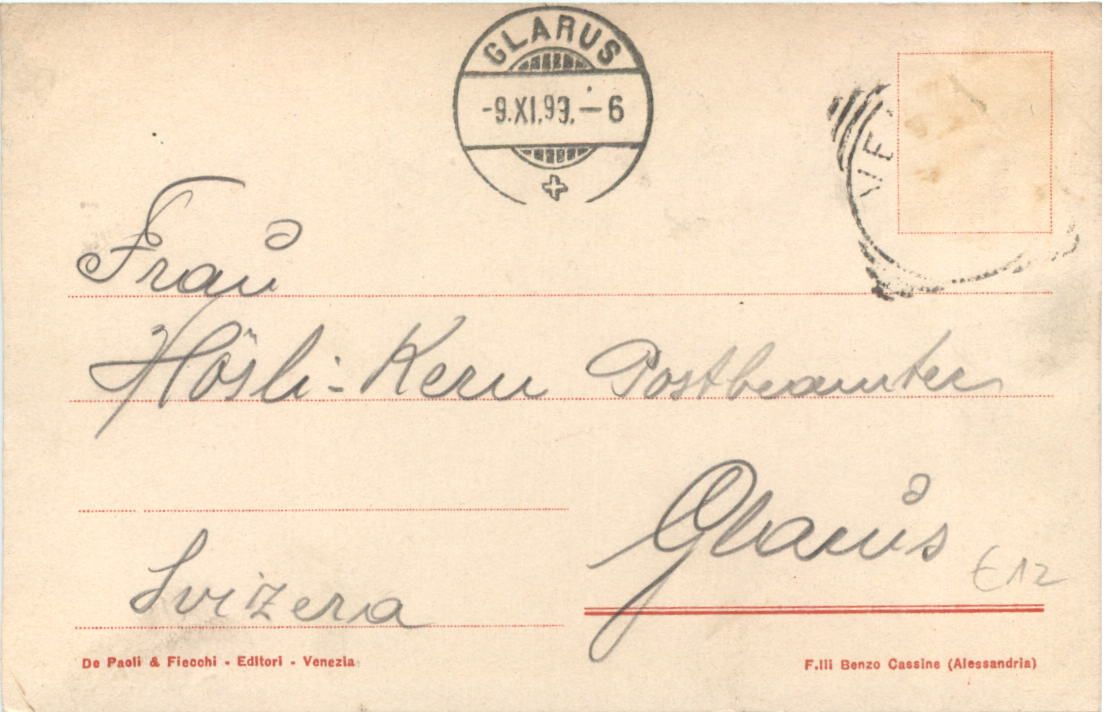 GLARUS
-9.XI.99.-6
VE
Frau
Hösli-Kern Postbeamter
Glarus
€12
Svizera
De Paoli & Fiecchi - Editori - Venezia
F.lli Benzo Cassine (Alessandria)